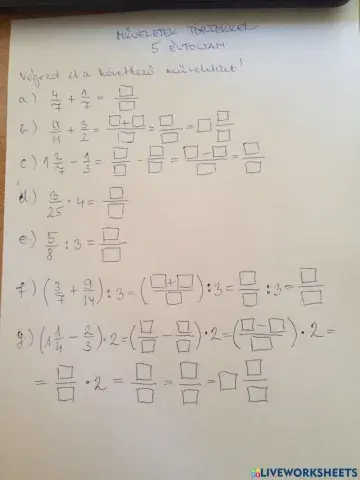 MŰVELETEK TÖRTEKKEL
5 ÉVFOLYAM
Végezd el a következő műveleteket!
a) 4/7 + 1/7 = □/□
b) 9/11 + 3/2 = (□+□)/□ = □/□ = □ □/□
c) 1 2/7 - 1/3 = □/□ - □/□ = (□-□)/□ = □/□
d) 3/25 · 4 = □/□
e) 5/8 : 3 = □/□
f) (3/7 + 9/14) : 3 = ((□+□)/□) : 3 = □/□ : 3 = □/□
g) (1 1/4 - 2/3) · 2 = (□/□ - □/□) · 2 = ((□-□)/□) · 2 =
= □/□ · 2 = □/□ = □/□ = □ □/□
LIVEWORKSHEETS